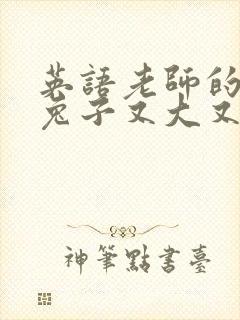 英語老師的
兔子又大又
神筆點書臺